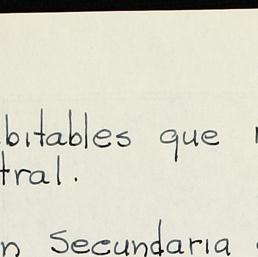 bitables que
tral.
n Secundaria